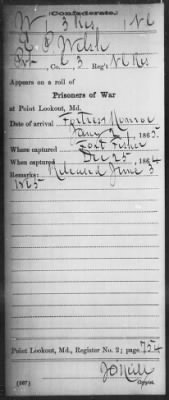 (Confederate.)
W 3 Res. N C
E P Welsh
Pvt, Co. C 3 Reg't N C Res
Appears on a roll of
Prisoners of War
at Point Lookout, Md.
Date of arrival Fortress Monroe
Jany 2, 1865.
Where captured Fort Fisher
When captured Dec 25, 1864
Remarks: Released June 3
1865
Point Lookout, Md., Register No. 2; page 754
J O Neill
(567) Copyist.